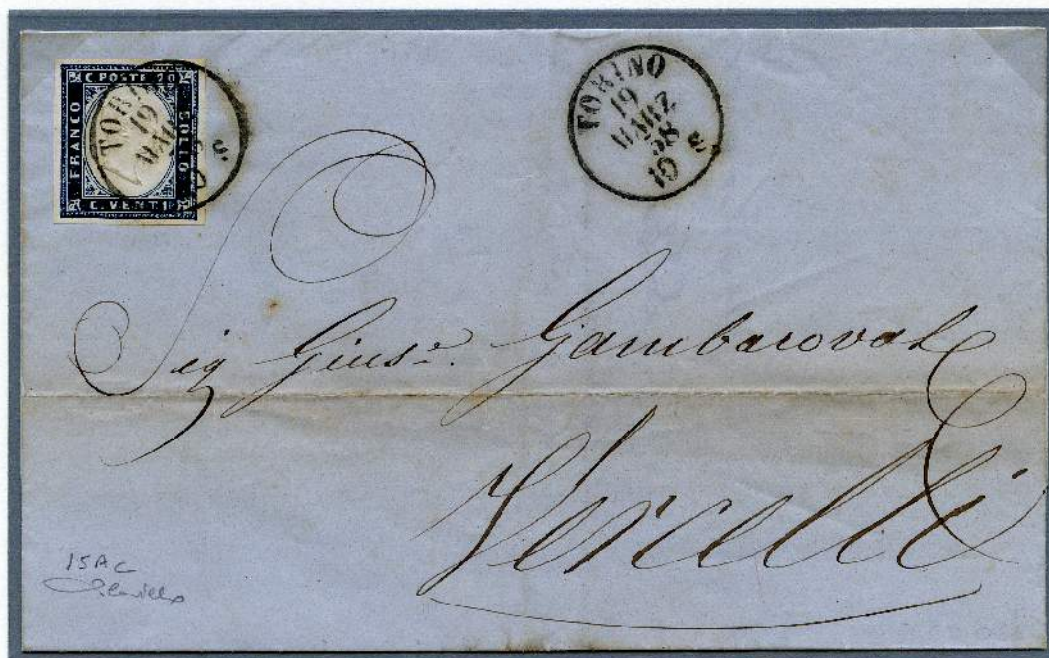 C. POSTE 20
FRANCO
BOLLO
C. VENTI
TORI
19
MAR
TORINO
19
MARZ
58
10 S
Sig Giuse. Gambarova
Vercelli
15AC